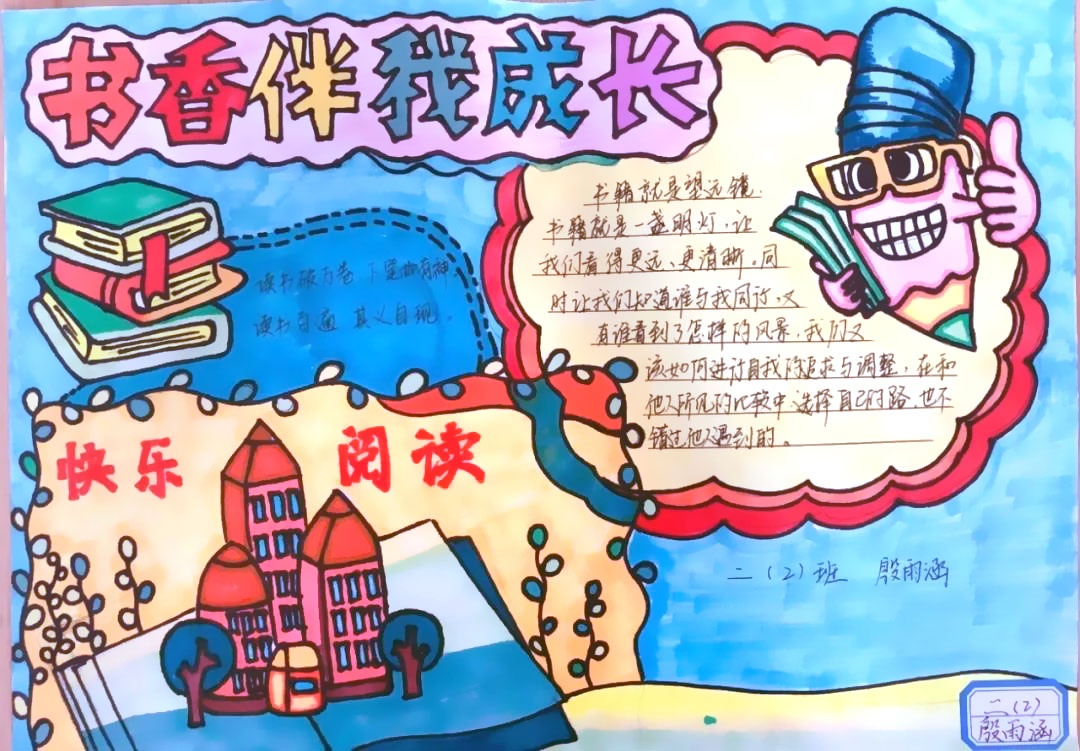 书香伴我成长
书籍就是望远镜.
书籍就是一盏明灯,让
我们看得更远、更清晰。同
时让我们知道谁与我同行,又
有谁看到了怎样的风景,我们又
该如何进行自我的追求与调整,在和
他人所见的比较中选择自己的路,也不
错过他人遇到的。
读书破万卷 下笔如有神,
读书百遍 其义自现。
快乐 阅读
二(2)班 殷雨涵
二(2)
殷雨涵